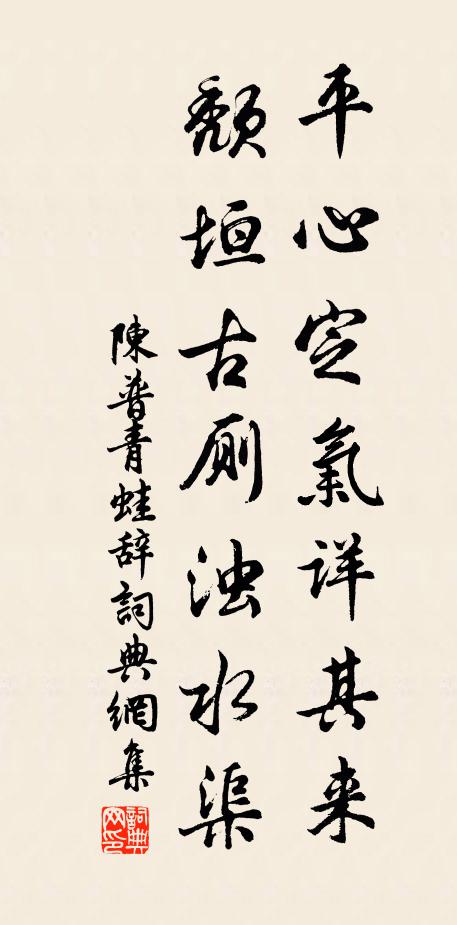 平心定氣详其来
颓垣古厕浊水渠
陳普青蛙辞詞典網集
詞典网印